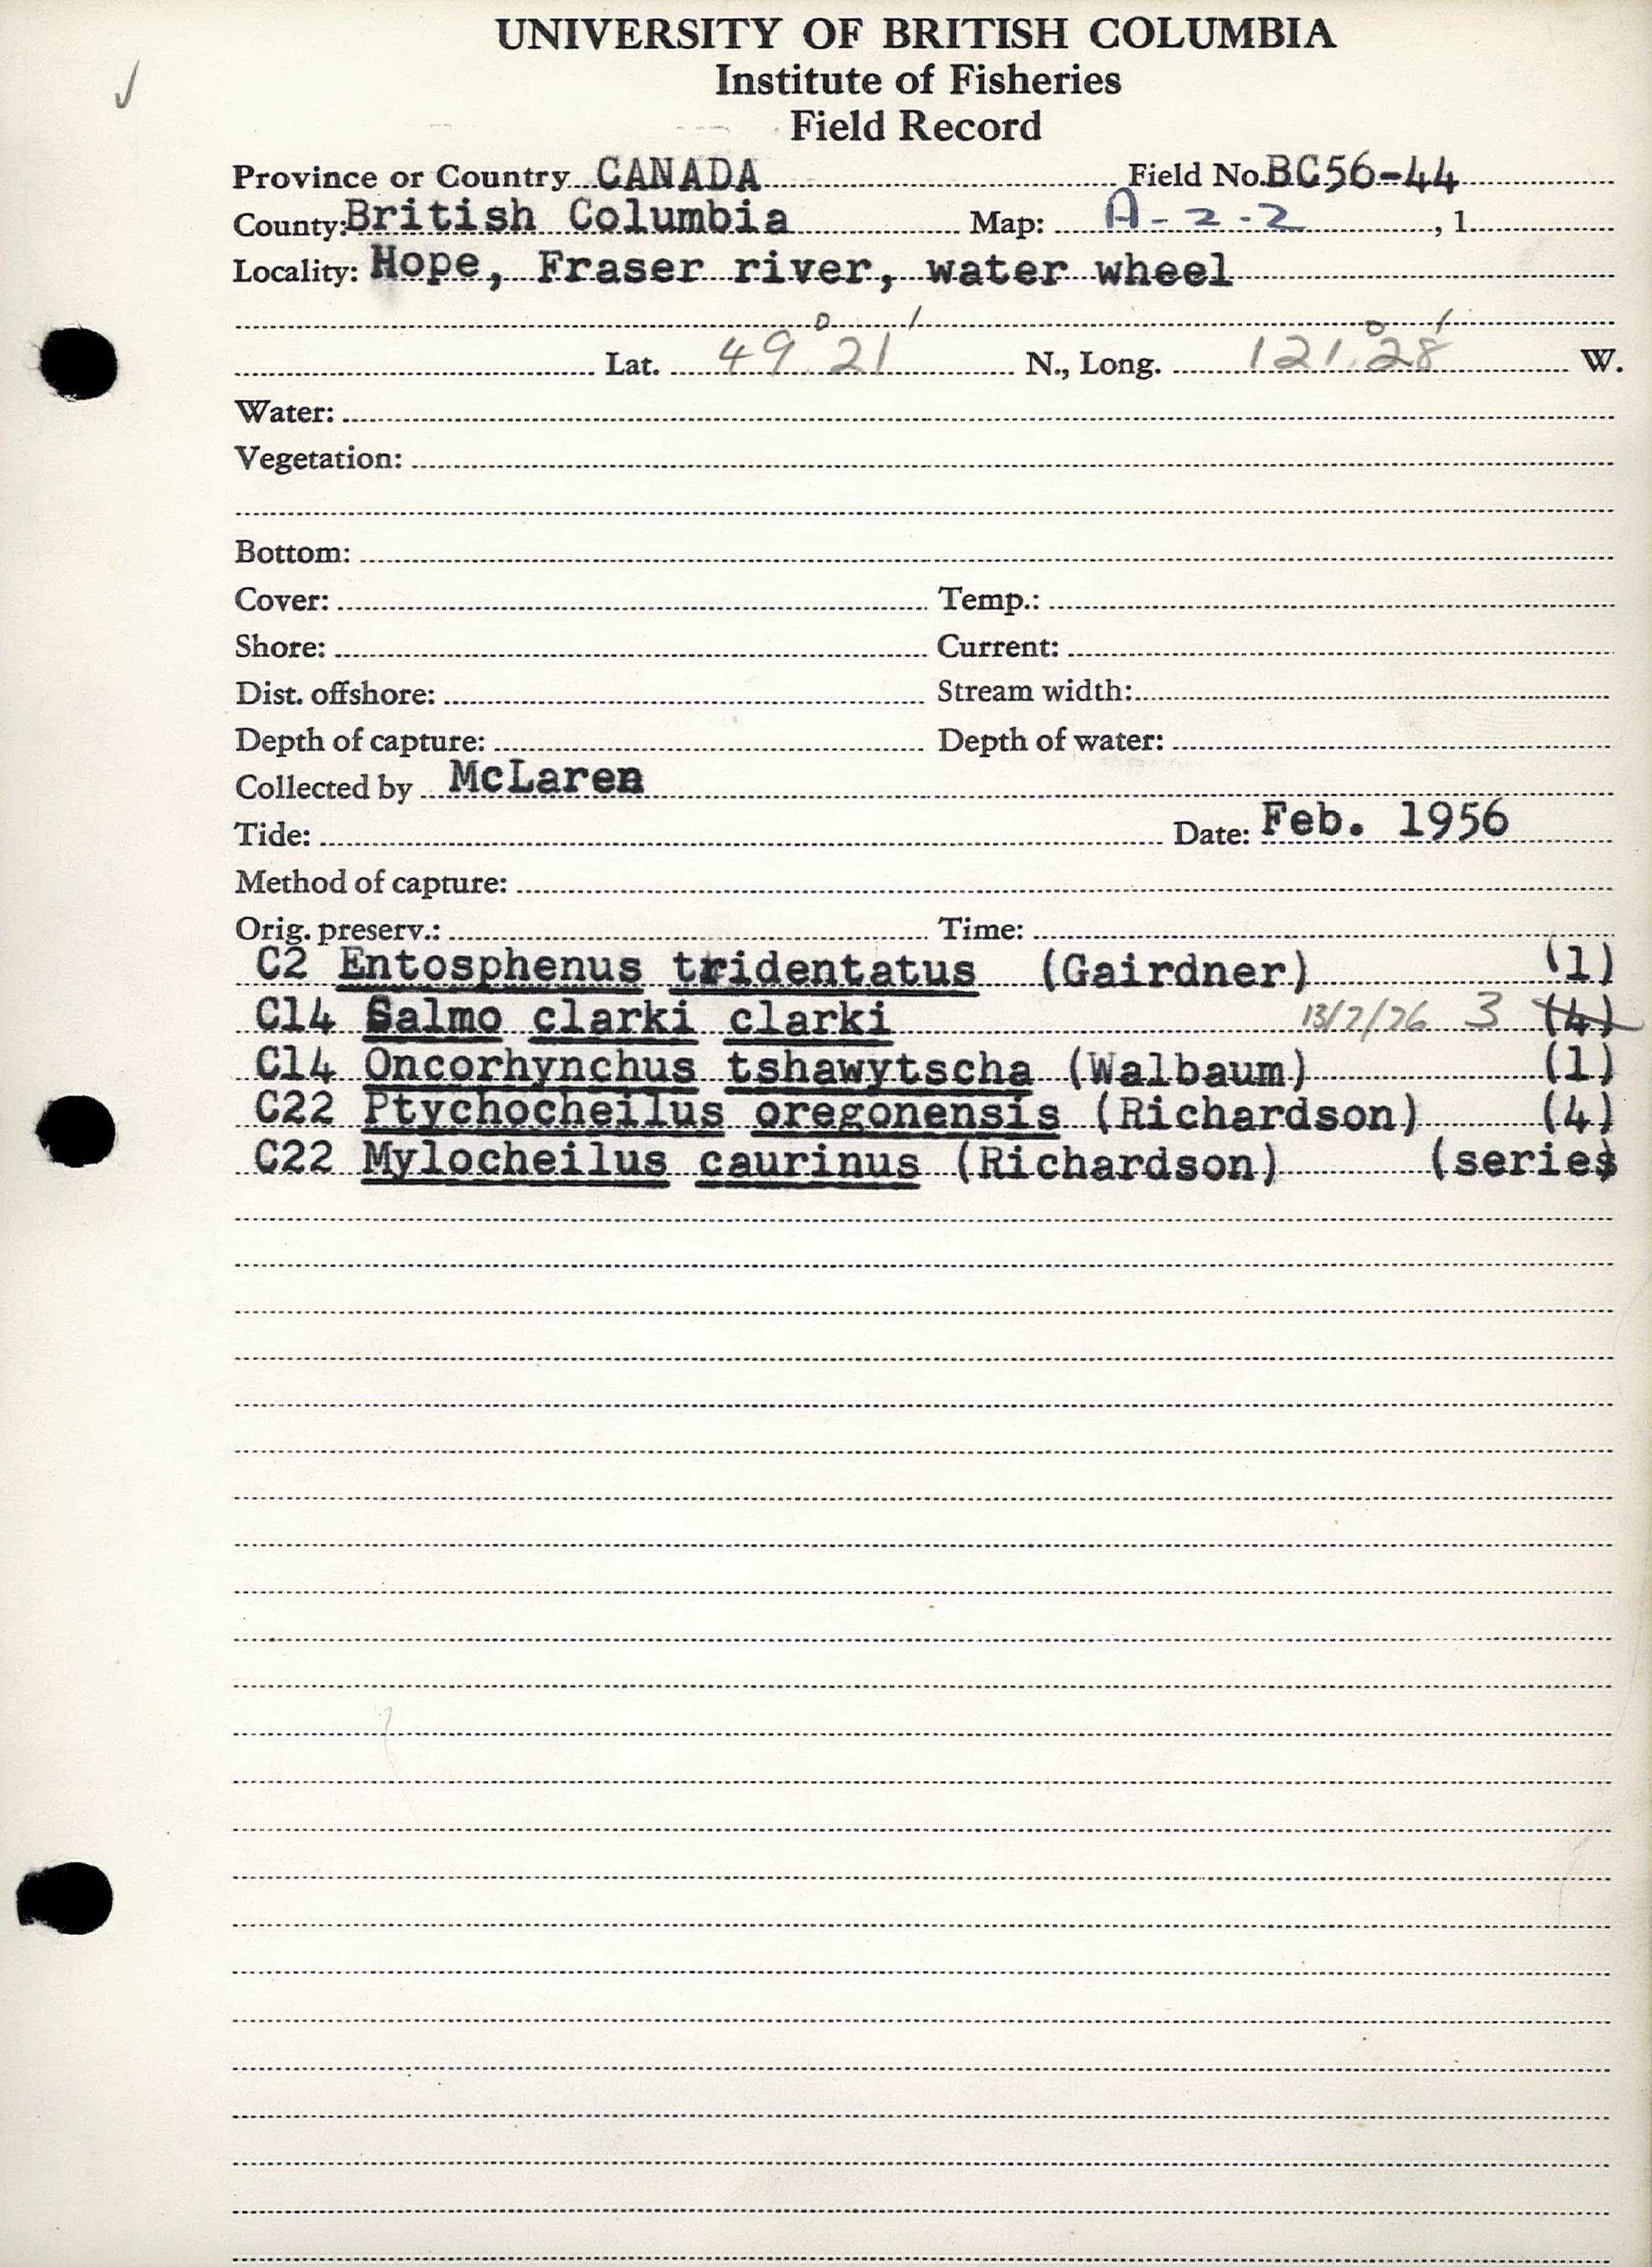 UNIVERSITY OF BRITISH COLUMBIA
Institute of Fisheries
Field Record
Province or Country CANADA Field No. BC56-44
County: British Columbia Map: A-2-2, 1.
Locality: Hope, Fraser river, water wheel
Lat. 49° 21' N., Long. 121° 28' W.
Water:
Vegetation:
Bottom:
Cover: Temp.:
Shore: Current:
Dist. offshore: Stream width:
Depth of capture: Depth of water:
Collected by McLaren
Tide: Date: Feb. 1956
Method of capture:
Orig. preserv.: Time:
C2 Entosphenus tridentatus (Gairdner) (1)
C14 Salmo clarki clarki 13/7/76 3 (4)
C14 Oncorhynchus tshawytscha (Walbaum) (1)
C22 Ptychocheilus oregonensis (Richardson) (4)
C22 Mylocheilus caurinus (Richardson) (series)